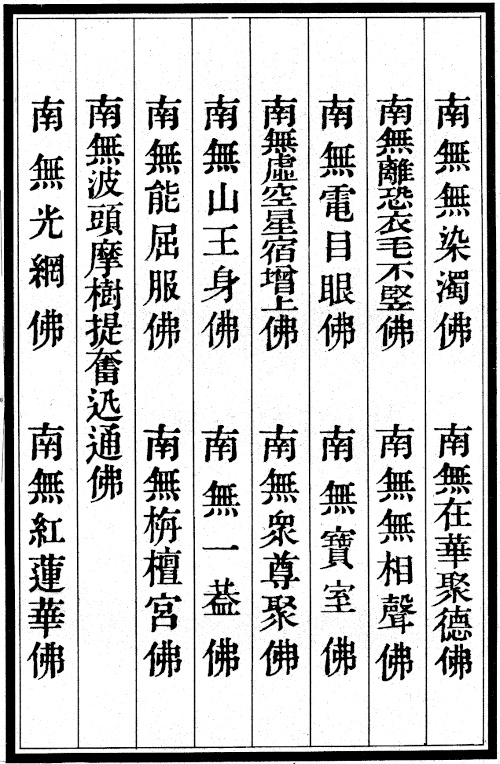 南無無染濁佛 南無在華聚德佛
南無離恐衣毛不竪佛 南無無相聲佛
南無虛空星宿增上佛 南無眾尊聚佛
南無電目眼佛 南無寶室佛
南無山王身佛 南無一蓋佛
南無能屈服佛 南無栴檀宮佛
南無波頭摩樹提奮迅通佛
南無光網佛 南無紅蓮華佛